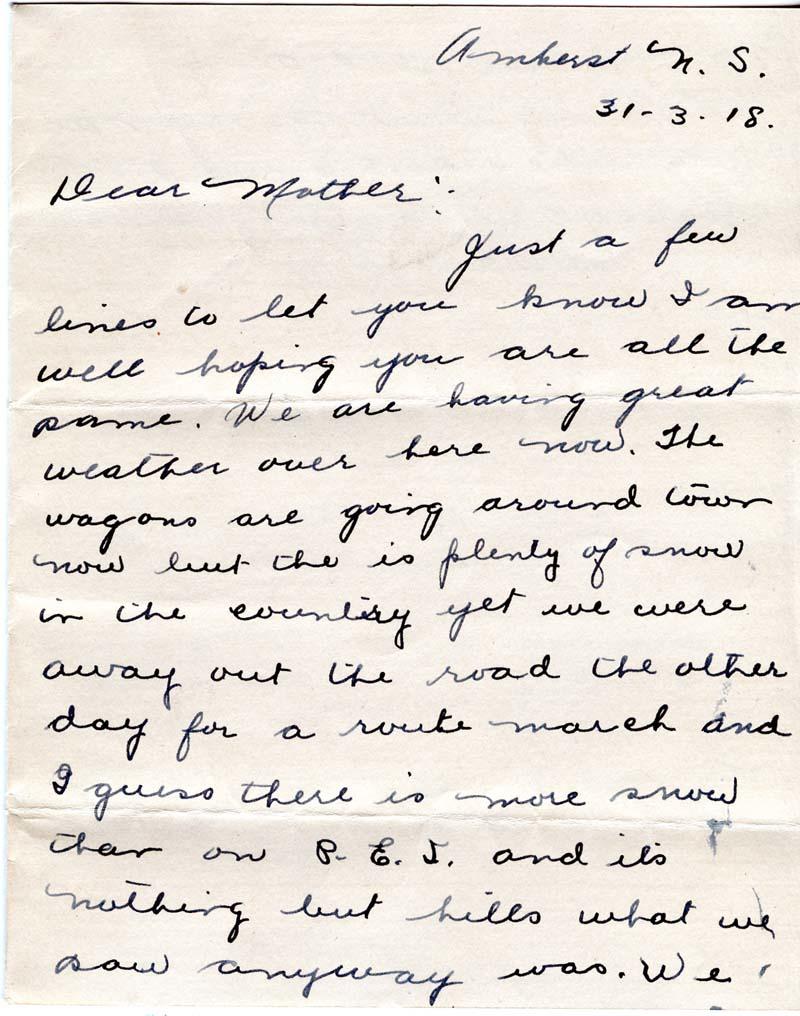 Amherst N. S.
31-3-18.
Dear Mother:
Just a few
lines to let you know I am
well hoping you are all the
same. We are having great
weather over here now. The
wagons are going around town
now but the is plenty of snow
in the country yet we were
away out the road the other
day for a route march and
I guess there is more snow
than on P. E. I. and its
nothing but hills what we
saw anyway was. We